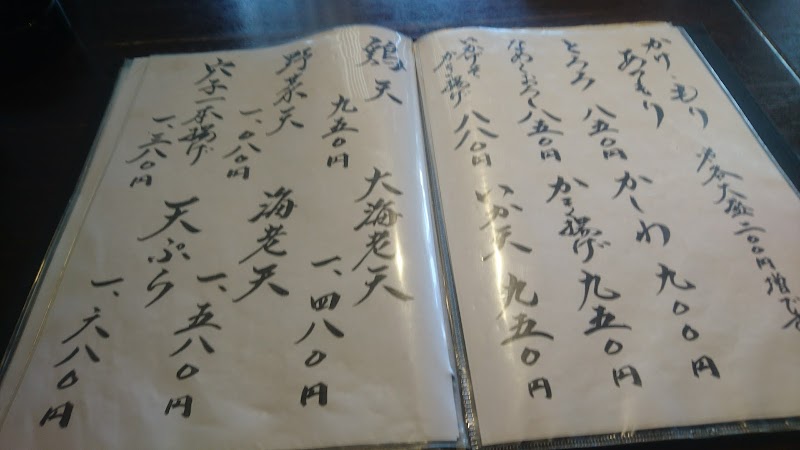 かけ、もり
あつもり
とろろ 八五〇円
なめこおろし 八五〇円
かき揚げ 八八〇円
各大盛二〇〇円増です
かしわ 九〇〇円
かき揚げ 九五〇円
いか天 九五〇円
鶏天 九五〇円
野菜天 一、〇八〇円
穴子一本揚げ 一、三八〇円
大海老天 一、四八〇円
海老天 一、五八〇円
天ぷら 一、六八〇円